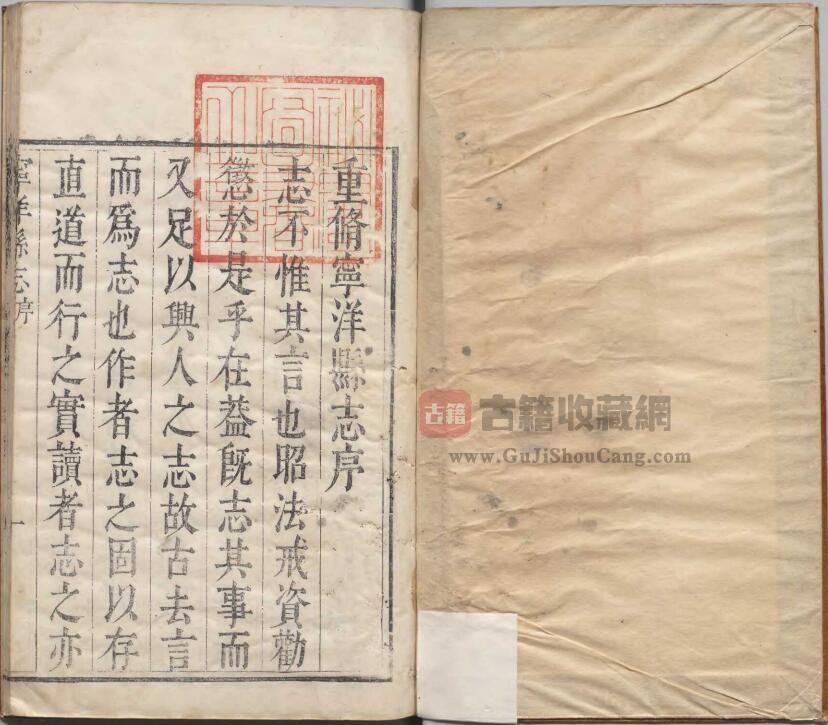 重脩寧洋縣志序
志不惟其言也昭法戒資勸
懲於是乎在葢既志其事而
又足以興人之志故古去言
而爲志也作者志之固以存
直道而行之實讀者志之亦
寧洋縣志序
一
古籍
古籍收藏網
www.GuJiShouCang.com